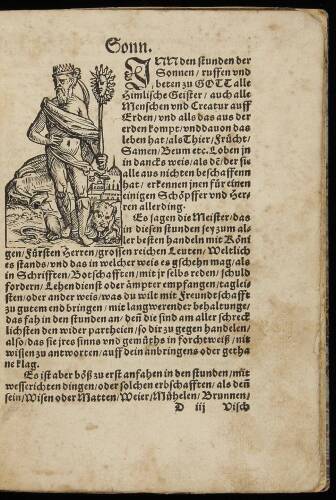 Sonn.
INn den stunden der
Sonnen / ruffen vnd
beten zu GOTT alle
Himlische Geister / auch alle
Menschen vnd Creatur auff
Erden / vnd alls das aus der
erden kompt / vnd dauon das
leben hat / als Thier / Frücht /
Samen / Beum etc. Loben jn
in dancks weis / als dē / der sie
alle aus nichten beschaffenn
hat / erkennen jnen für einen
einigen Schöpffer vnd Her-
ren aller ding.
Es sagen die Meister / das
in diesen stunden sey zum al-
ler besten handeln mit Köni
gen / Fürsten Herren / grossen reichen Leuten / Weltlich
es stands / vnd das in welcher weis es gschehn mag / als
in Schrifften / Botschafften / mit jr selbs reden / schuld
fordern / Lehen dienst oder ämpter empfangen / tagleis
sten / oder ander weis / was du wilt mit Freundtschafft
zu gutem end bringen / mit langwerender behaltunge /
das fah in den stunden an / deñ die sind am aller schreck
lichsten den wider partheien / so dir zu gegen handelen /
also / das sie jres sinns vnd gemüths in forchtweiß / nit
wisen zu antworten / auff dein anbringens oder getha
ne klag.
Es ist aber böß zu erst anfahen in den stunden / mit
wesserichten dingen / oder solchen erbschafften / als deñ
sein / Wisen oder Matten / Weier / Mühelen / Brunnen /
D iij Visch